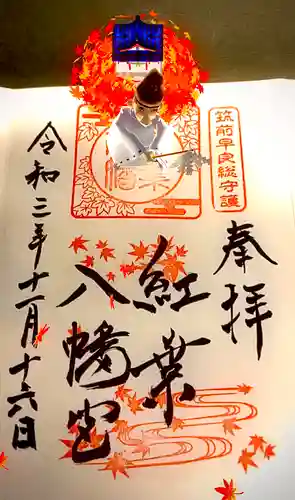 奉拝
筑前早良総守護
紅葉
八幡宮
令和三年十一月十六日